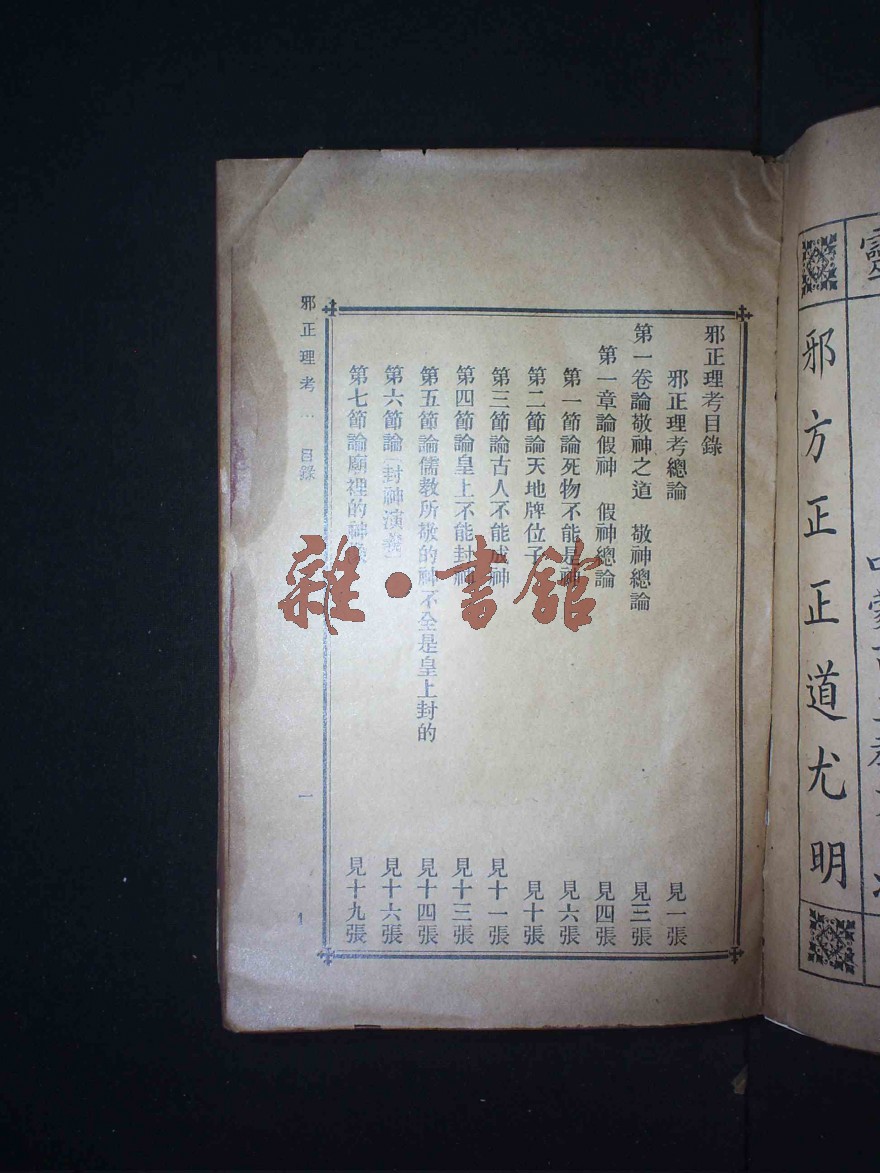 邪正理考目錄
邪正理考總論 見一張
第一卷論敬神之道 敬神總論 見三張
第一章論假神 假神總論 見四張
第一節論死物不能是神 見六張
第二節論天地牌位子 見十張
第三節論古人不能成神 見十一張
第四節論皇上不能封神 見十三張
第五節論儒教所敬的神不全是皇上封的 見十四張
第六節論〔封神演義〕 見十六張
第七節論廟裡的神 見十九張
邪正理考 … 目錄
一
1
邪方正正道尤明
雜·書館